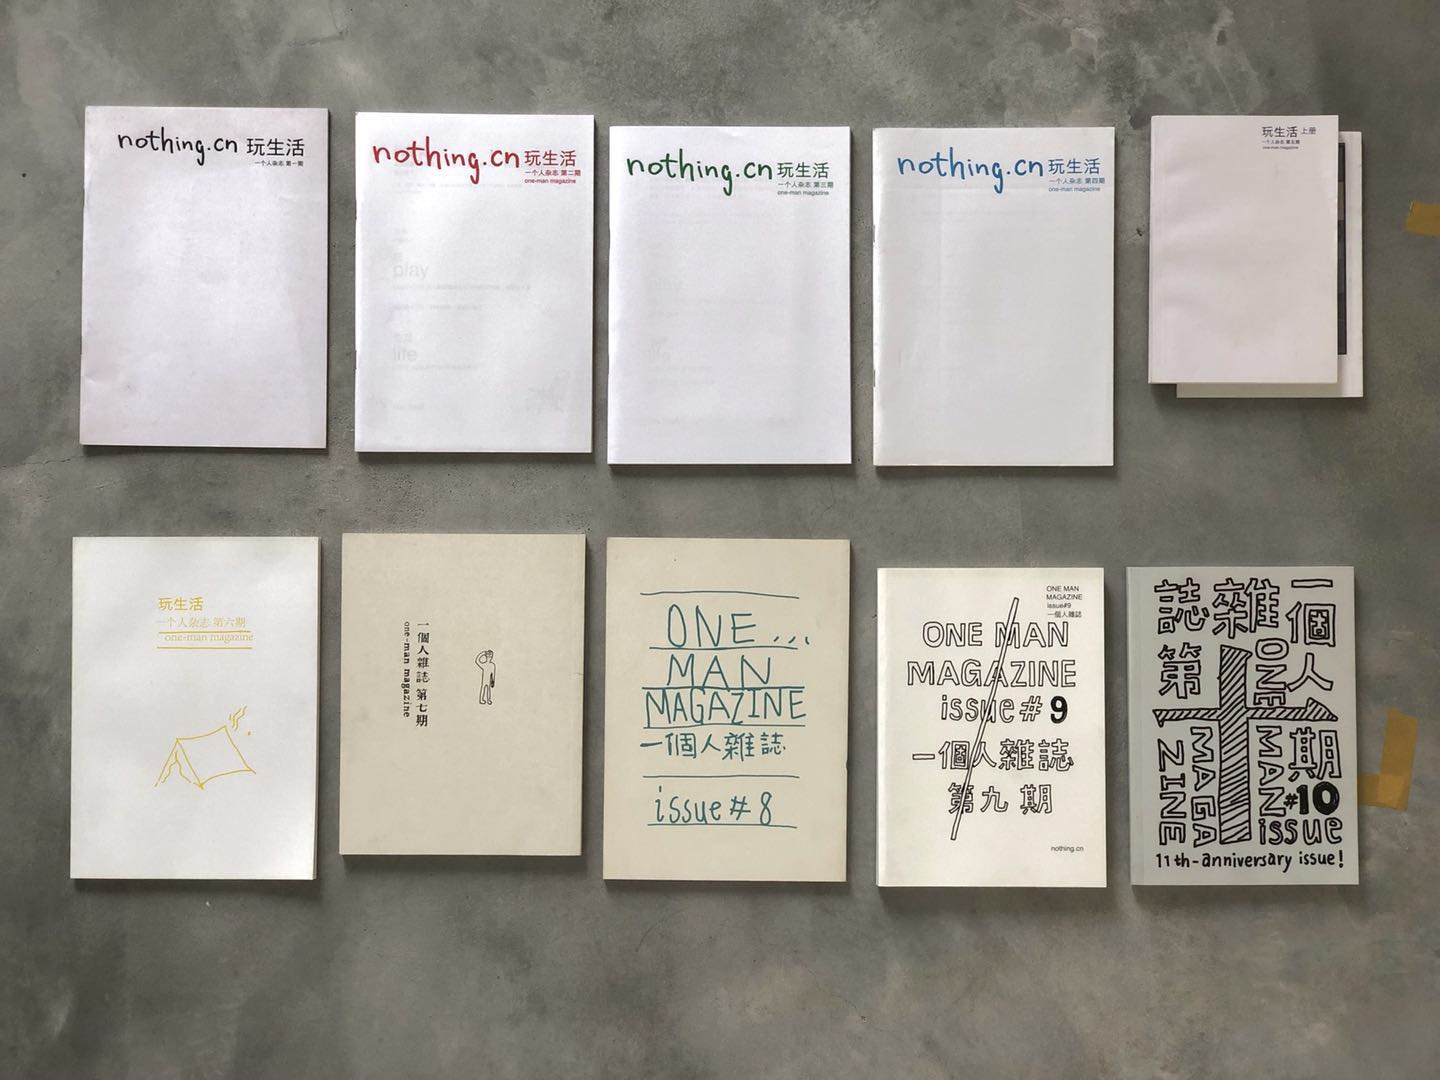 nothing.cn 玩生活
一个人杂志 第一期
nothing.cn 玩生活
一个人杂志 第二期
one-man magazine
play
life
nothing.cn 玩生活
一个人杂志 第三期
one-man magazine
nothing.cn 玩生活
一个人杂志 第四期
one-man magazine
玩生活 上册
一个人杂志 第五期
one-man magazine
玩生活
一个人杂志 第六期
one-man magazine
一個人雜誌 第七期
one-man magazine
ONE...
MAN
MAGAZINE
一個人雜誌
issue# 8
ONE MAN
MAGAZINE
issue#9
一個人雜誌
ONE MAN
MAGAZINE
issue # 9
一個人雜誌
第九期
nothing.cn
一個人
雜誌
第十期
ONE MAN
MAGAZINE
issue #10
11th-anniversary issue!